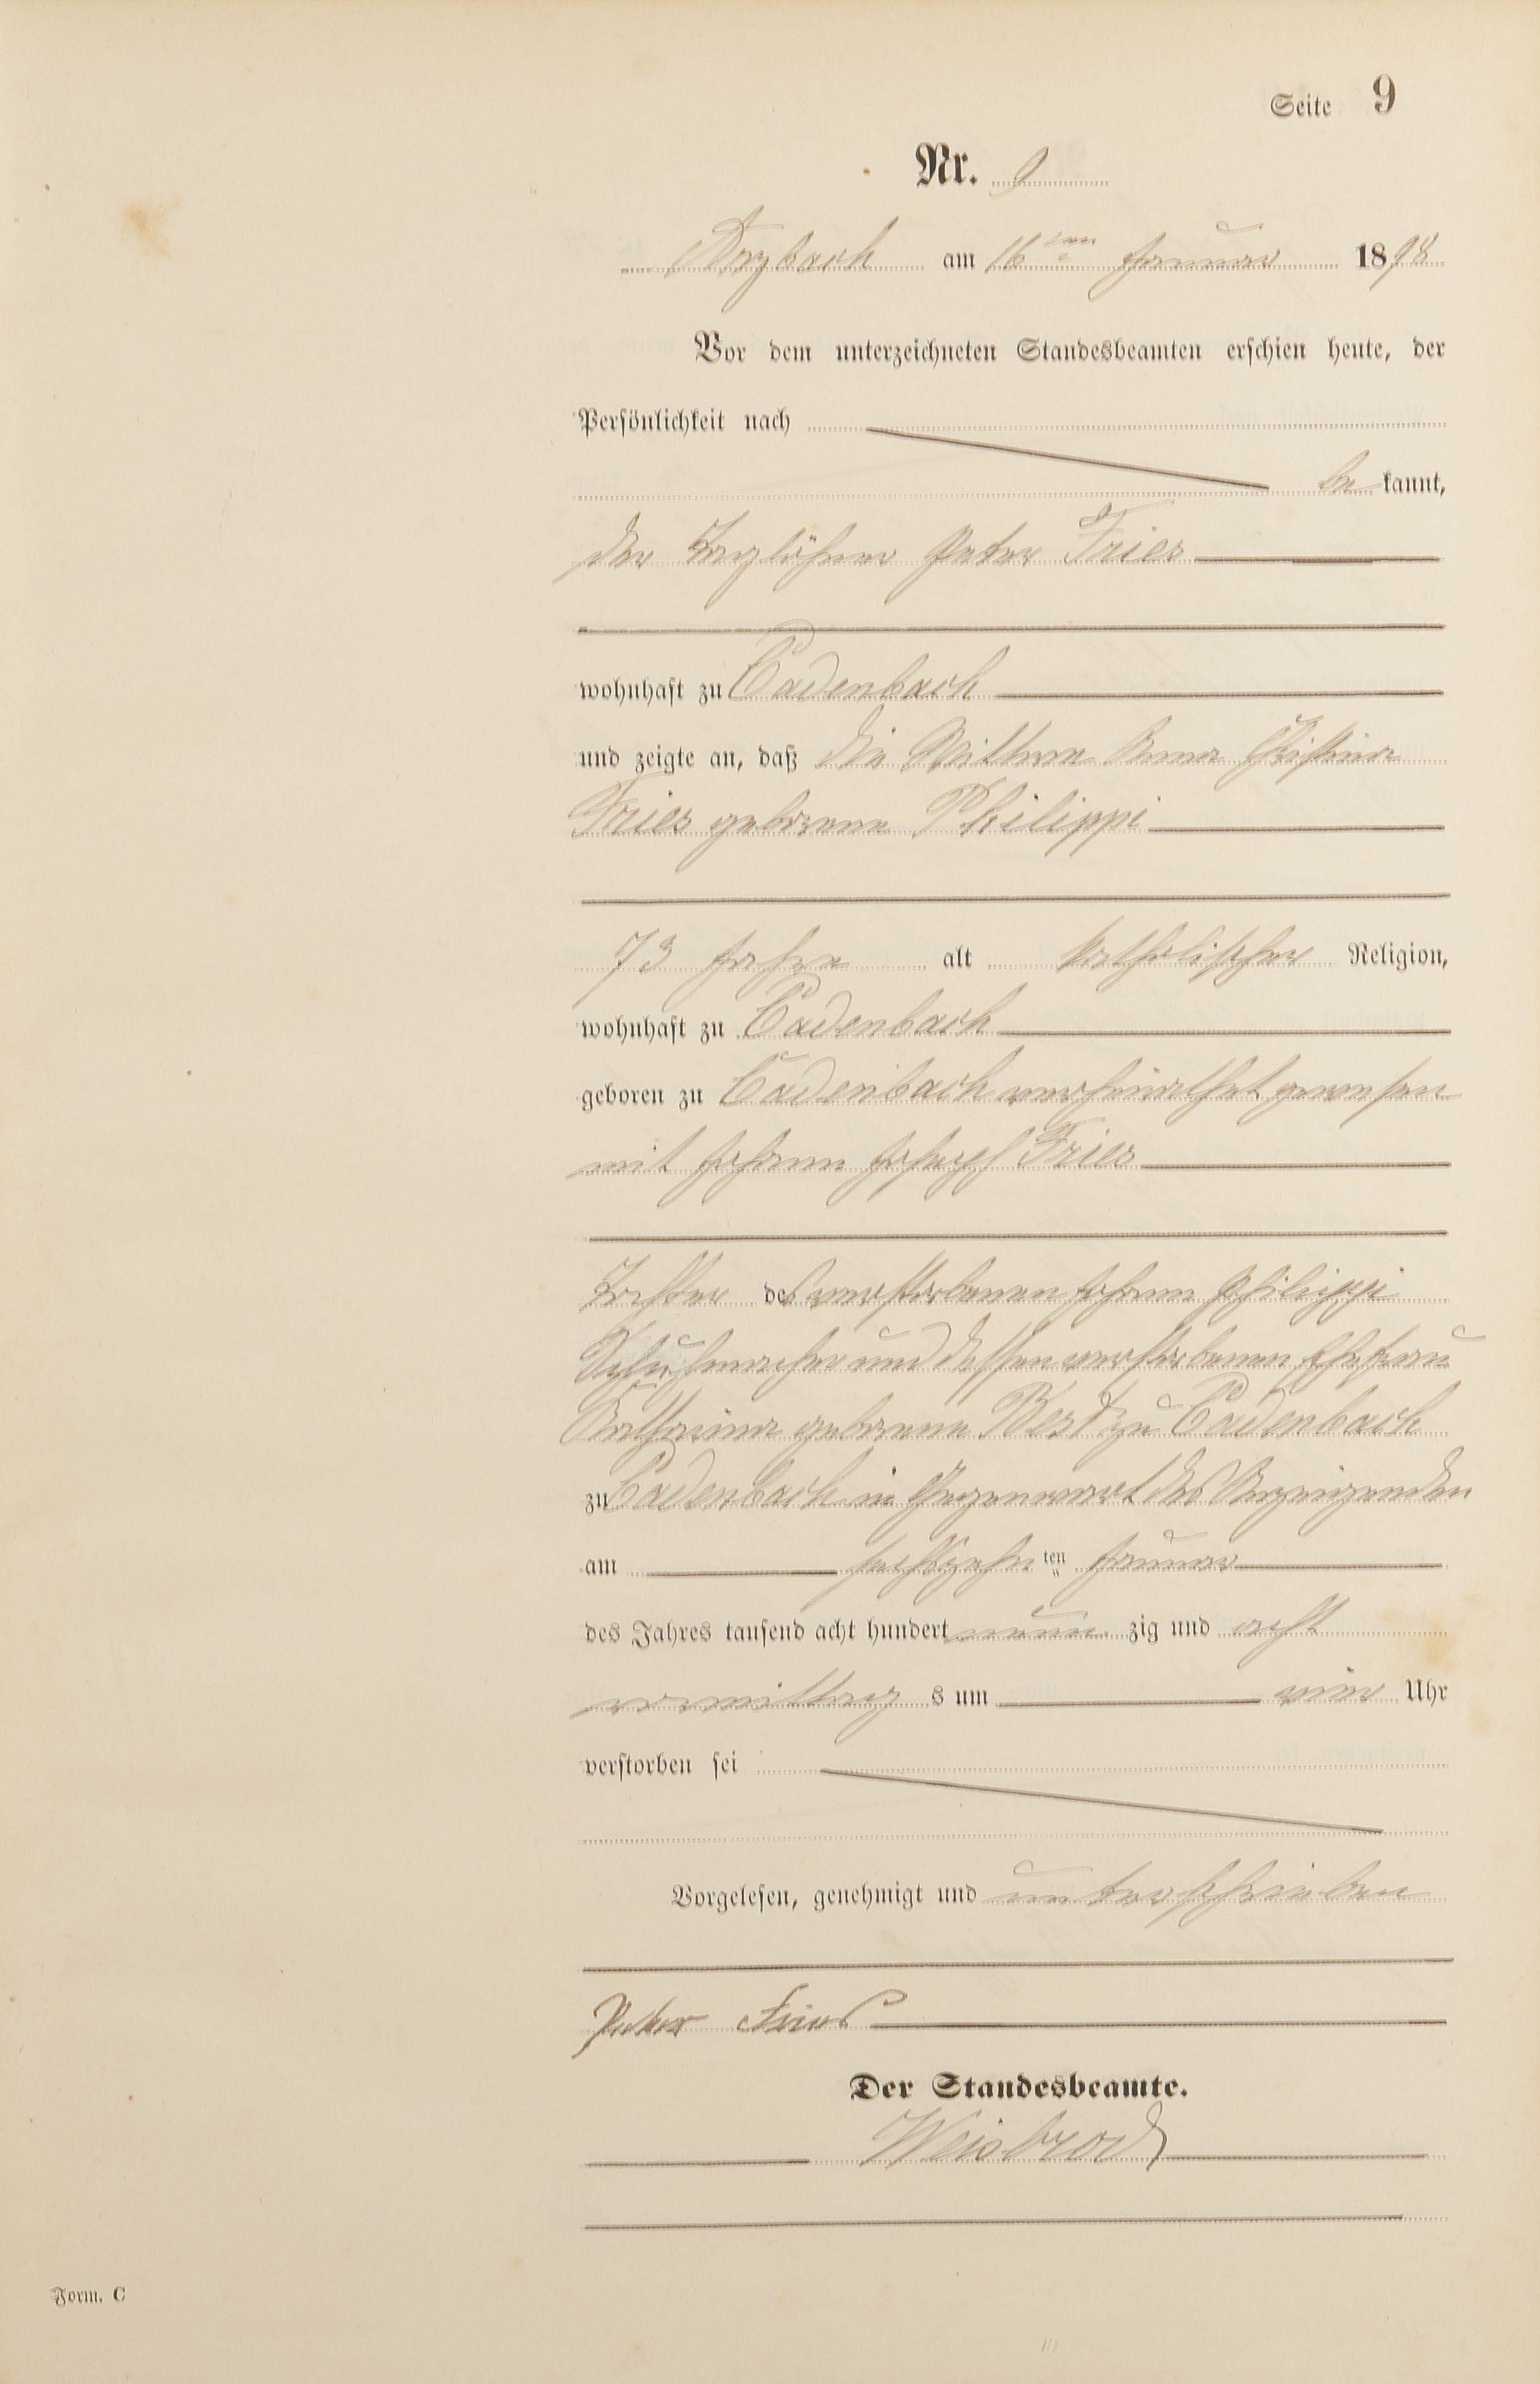 Seite 9
Nr. 9
Arzbach am 16ten Januar 1898
Vor dem unterzeichneten Standesbeamten erschien heute, der
Persönlichkeit nach
bekannt,
der Taglöhner Peter Fries
wohnhaft zu Cadenbach
und zeigte an, daß die Wittwe Anna Christina
Fries geborene Philippi
73 Jahre alt katholischer Religion,
wohnhaft zu Cadenbach
geboren zu Cadenbach verheirathet gewesen
mit Johann Joseph Fries
Tochter des verstorbenen Johann Philippi
Schuhmacher und dessen verstorbenen Ehefrau
Katharina geborene zu Cadenbach
zu Cadenbach in Gegenwart des Anzeigenden
am sechszehnten Januar
des Jahres tausend acht hundert neunzig und acht
vormittags um vier Uhr
verstorben sei
Vorgelesen, genehmigt und unterschrieben
Peter Fries
Der Standesbeamte.
Weisbrod
Form. C